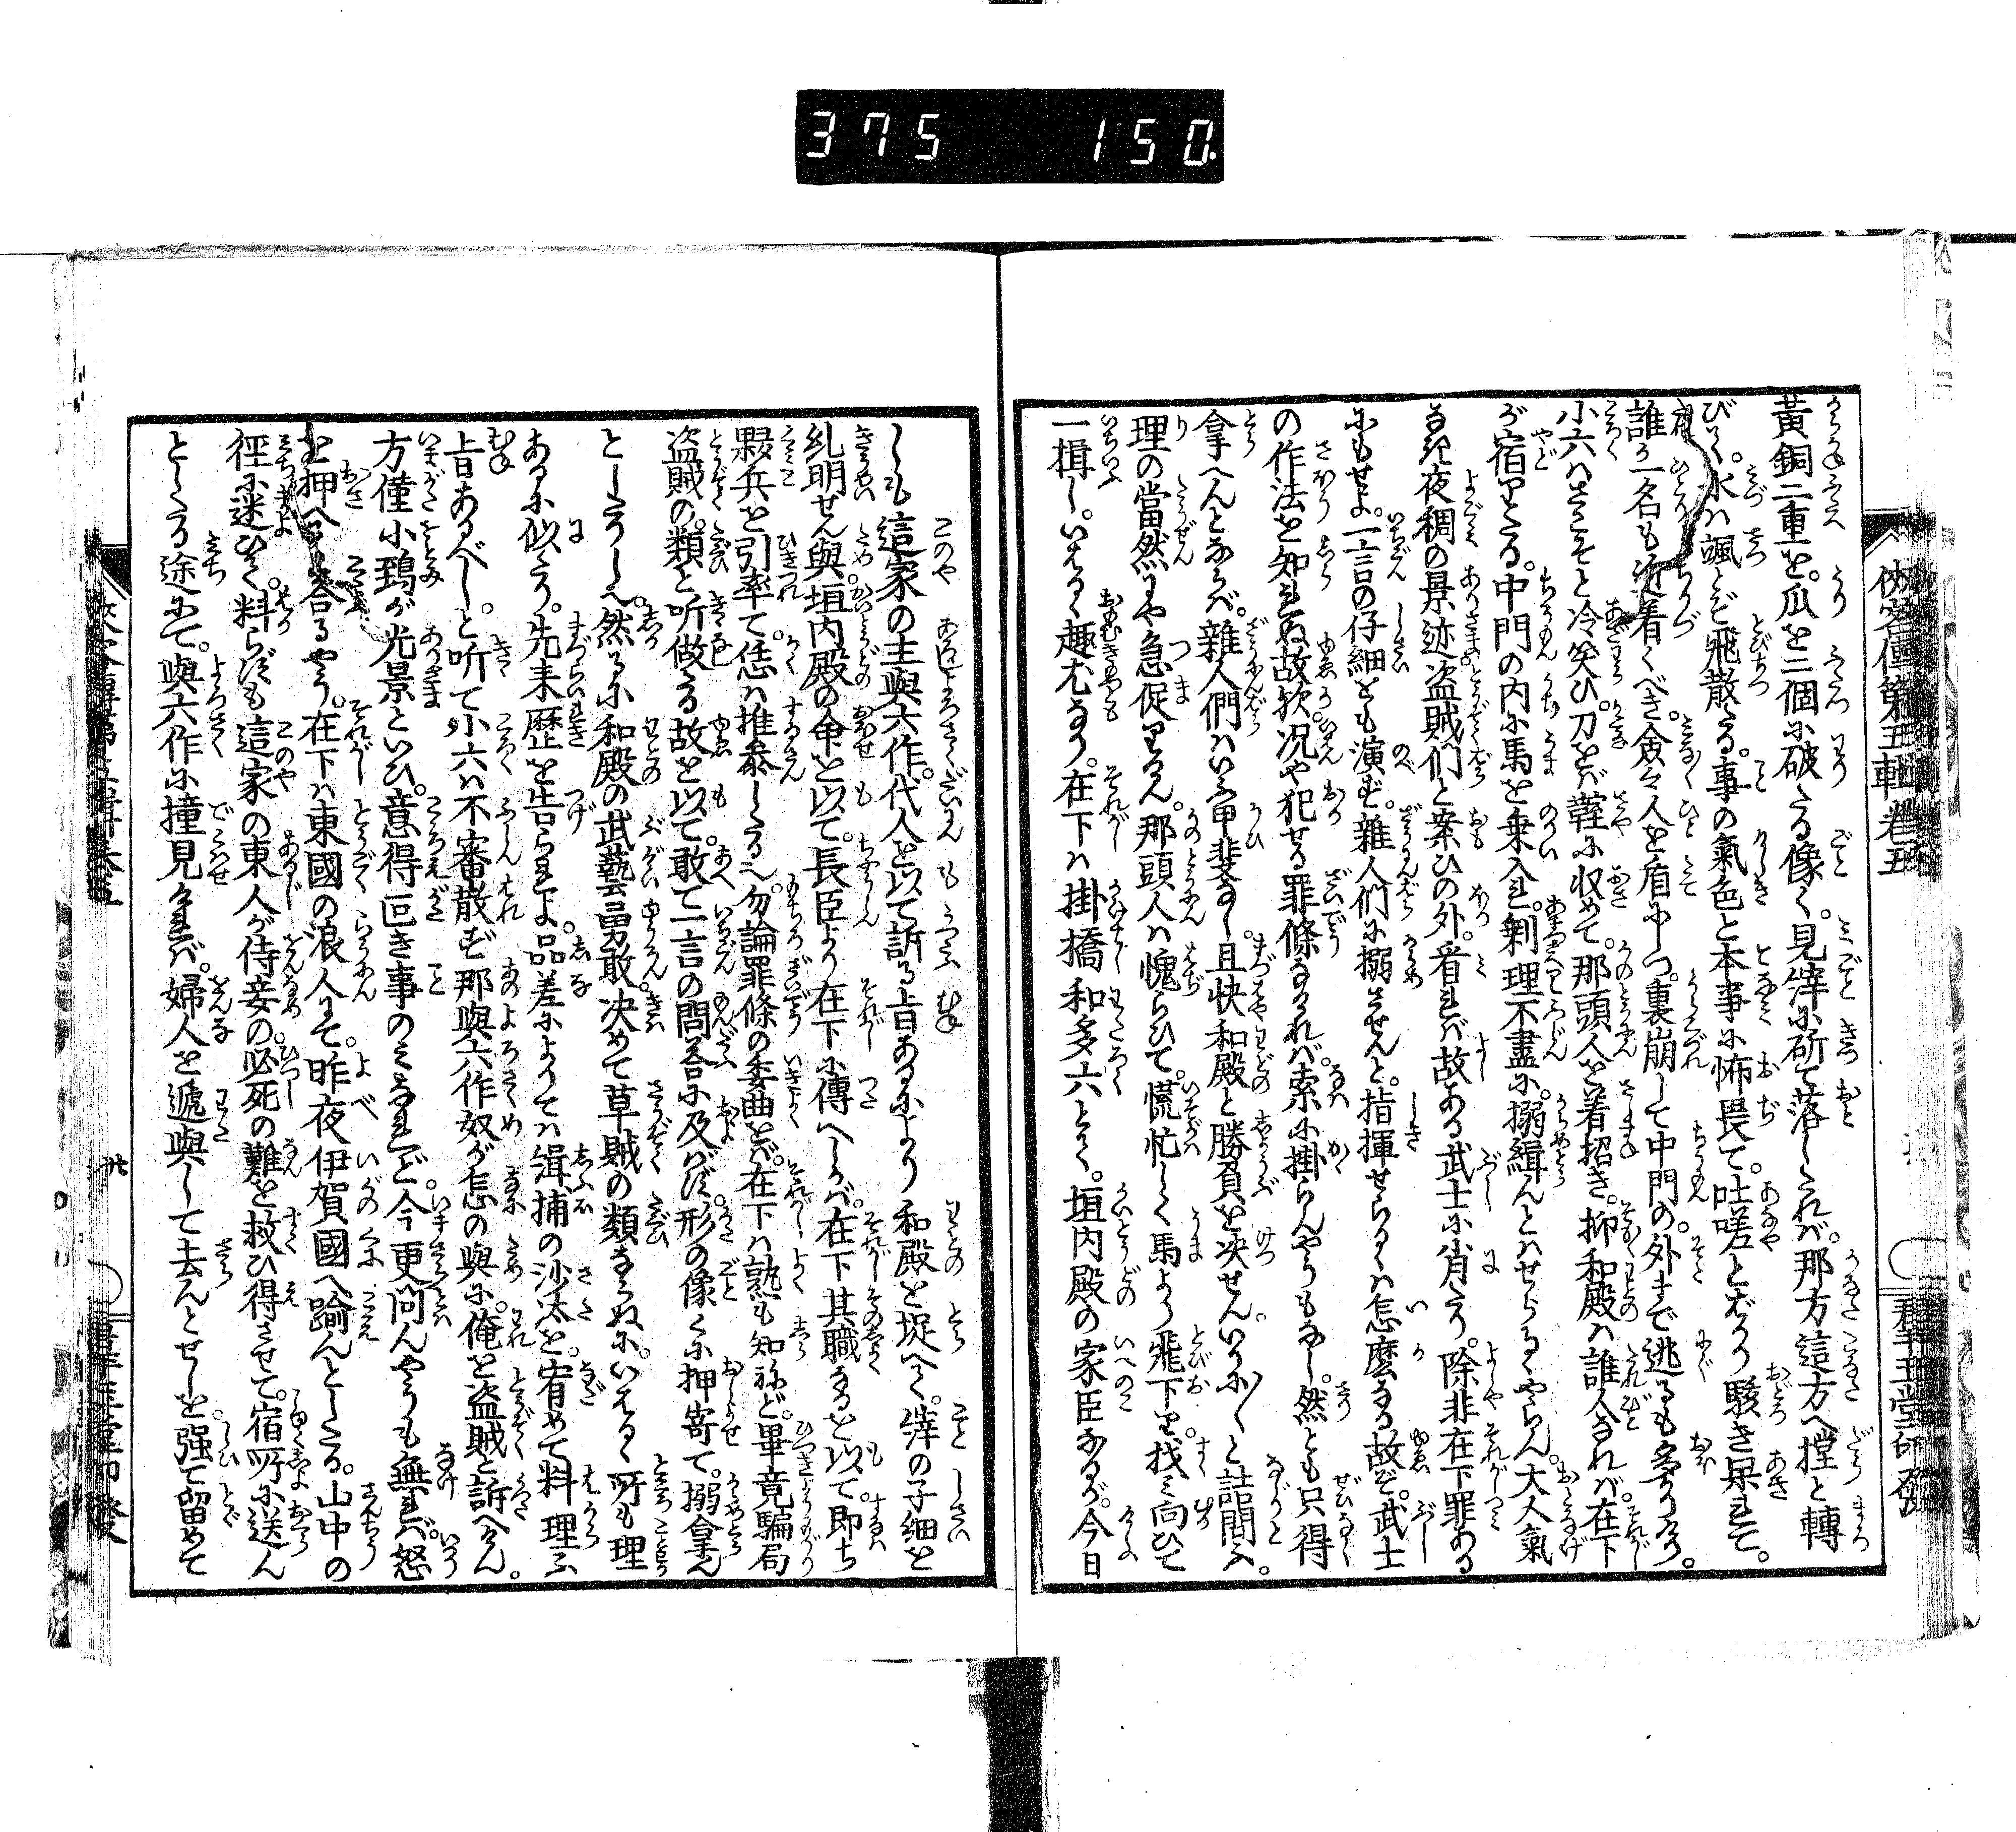 375 150
俠客傳第五輯卷五
黃銅二重を。瓜を二個に破たる像く。見事に斫て落したれば。那方這方へ撑と轉
びて。水は颯とぞ飛散たる。事の氣色と本事に怖畏て。吐嗟とばかり駭き呆れて。
誰か一名も近着くべき。僉々人を盾にしつ。裏崩して中門の。外まで逃るも多かりける。
小六はさこそと冷笑ひ。刀をば鞘に収めて。那頭人を着招き。抑和殿は誰人なれば。在下
が宿りたる。中門の内に馬を乗入れ。剰理不盡に。搦緝んとはせらるゝやらん。大人氣
なき夜稠の景迹盗賊們と桒ひの外。看れば故ある武士に肖たり。除非在下罪ある
にもせよ。一言の仔細をも演ず。雜人們に搦させんと。指揮せらるゝは怎麼なる故ぞ。武士
の作法を知れぬ故欤。况や犯せる罪條なければ。索に掛らんやうもなし。然とも只得
拿へんとならば。雜人們はいふ甲斐なし。且快和殿と勝負を决せん。いかに〳〵と詰問ふ。
理の當然にや急促りけん。那頭人は愧らひて。慌忙しく馬より飛下り。找み向ひて
一揖し。いはるゝ趣尤なり。在下は掛橋和多六とて。垣内殿の家臣なるが。今日
しも這家の主與六作。代人を以て訴る旨あるにより和殿を捉へて。事の子細を
糺明せん與垣内殿の命を以て。長臣より在下に傳へしかば。在下其職なるを以て。即ち
夥兵を引率て。恁は推參したる也。勿論罪條の委曲をば。在下は熟も知ねど。畢竟騙局
盗賊の。類と听做たる故を以て。敢て一言の問答に及ばず。形の像くに押寄て。搦拿ん
としたりし也。然るに和殿の武藝勇敢。决めて草賊の類ならぬに。いはるゝ所も理
あるに似たり。先来歴を告られよ。品差によりては緝捕の沙汰を。宥めて料理ふ
旨あるべし。と听て小六は不審散ず那與六作奴が怎の與に。俺を盗賊と訴へけん。
方僅小鵐が光景といひ。意得叵き事のみなれど。今更問んやうも無れば。怒
を押へて答るやう。在下は東國の浪人にて。昨夜伊賀國へ踰んとしたる。山中の
徑に迷ひて。料らずも這家の東人が侍妾の。必死の難を救ひ得させて。宿所に送ん
としたる途にて。與六作に撞見ければ。婦人を遞與して去んとせしを。强て留めて
卅